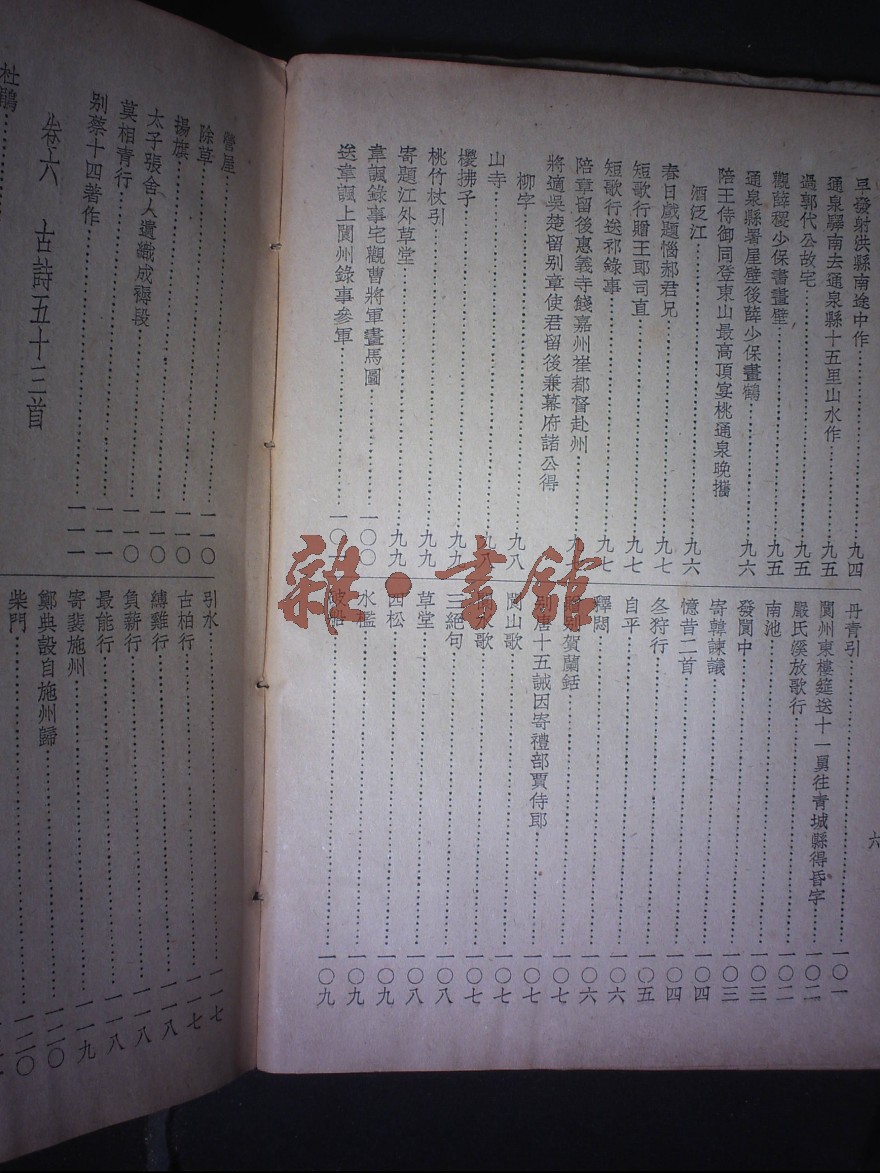 早發射洪縣南途中作……九四
通泉驛南去通泉縣十五里山水作……九五
過郭代公故宅……九五
觀薛稷少保書畫壁……九五
通泉縣署屋壁後薛少保畫鶴……九六
陪王侍御同登東山最高頂宴姚通泉晚攜
酒泛江……九六
春日戲題惱郝君兄……九七
短歌行贈王郎司直……九七
短歌行送祁錄事……九七
陪章留後惠義寺餞嘉州崔都督赴州……九
將適吳楚留别章使君留後兼幕府諸公得
柳字……九八
山寺……九八
櫻拂子……九九
桃竹杖引……九九
寄題江外草堂……九九
韋諷錄事宅觀曹將軍畫馬圖……一〇〇
送韋諷上閬州錄事參軍……一〇
丹青引……一〇一
閬州東樓筵送十一舅往青城縣得昏字……一〇二
嚴氏溪放歌行……一〇二
南池……一〇三
發閬中……一〇三
寄韓諫議……一〇四
憶昔二首……一〇四
冬狩行……一〇五
自平……一〇六
釋悶……一〇六
贈别賀蘭銛……一〇七
别唐十五誡因寄禮部賈侍郎……一〇七
閬山歌……一〇七
水歌……一〇七
三絕句……一〇八
草堂……一〇八
四松……一〇九
水檻……一〇九
破船……一〇九
六
營屋……一一〇
除草……一一〇
揚旗……一一〇
太子張舍人遺織成褥段……一一〇
莫相青行……一一一
别蔡十四著作……一一一
卷六 古詩五十三首
杜鵑……
引水……一一七
古柏行……一一七
縛雞行……一一八
負薪行……一一八
最能行……一一八
寄裴施州……一一九
鄭典設自施州歸……一二〇
柴門……一二〇
雜·書館